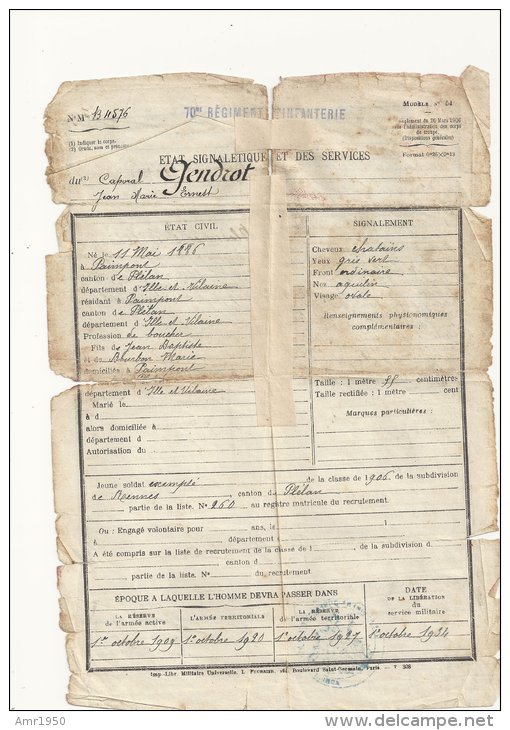 N° Mle 134576
70ME RÉGIMENT D'INFANTERIE
MODÈLE N° 04
Règlement du 26 Mars 1906
sur l'administration des corps
de troupe.
(Dispositions générales)
Format 0m36×0m23
(1) Indiquer le corps.
(2) Grade, nom et prénoms
ETAT SIGNALÉTIQUE ET DES SERVICES
du(2) Caporal Gendrot
Jean Marie Ernest
ÉTAT CIVIL
Né le 11 Mai 1886
à Paimpont
canton de Plélan
département d'Ille et Vilaine
résidant à Paimpont
canton de Plélan
département d'Ille et Vilaine
Profession de boucher
Fils de Jean Baptiste
et de Bourbon Marie
domiciliés à Paimpont
département d'Ille et Vilaine
Marié le
à d
alors domiciliée à
département d
Autorisation du
SIGNALEMENT
Cheveux chatains
Yeux gris vert
Front ordinaire
Nez aquilin
Visage ovale
Renseignements physionomiques
complémentaires :
Taille : 1 mètre 55 centimètres
Taille rectifiée : 1 mètre cent
Marques particulières :
Jeune soldat exempté de la classe de 1906 de la subdivision
de Rennes, canton de Plélan
partie de la liste. N° 260 au registre matricule du recrutement.
Ou : Engagé volontaire pour ans, le
à département d
A été compris sur la liste de recrutement de la classe de 1 , de la subdivision d
canton d
partie de la liste, N° du recrutement
ÉPOQUE A LAQUELLE L'HOMME DEVRA PASSER DANS
DATE
DE LA LIBÉRATION
du
service militaire
LA RÉSERVE
de l'armée active
L'ARMÉE TERRITORIALE
LA RÉSERVE
de l'armée territoriale
1er octobre 1909
1er octobre 1920
1er octobre 1927
1er octobre 1934
Imp.-Libr. Militaire Universelle, L. Fournier, 264, Boulevard Saint-Germain, Paris. — V 308
Amr1950
delcampe.net